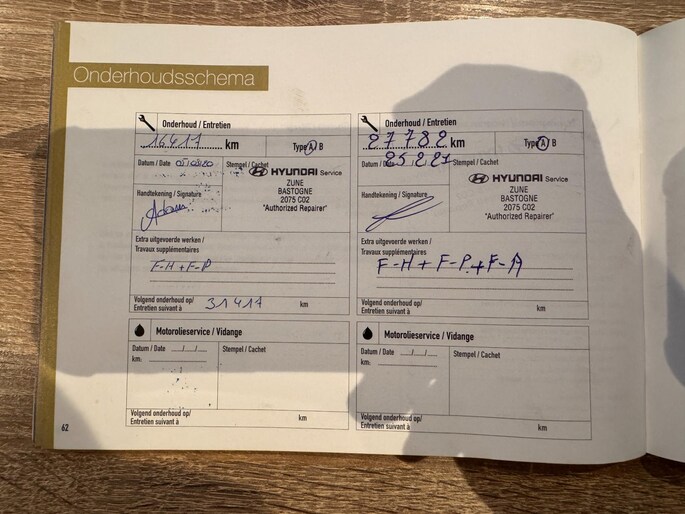 Onderhoudsschema
Onderhoud / Entretien
16417 km Type A / B
Datum / Date 05/08/20 Stempel / Cachet
HYUNDAI Service
ZUNE
BASTOGNE
2075 C02
"Authorized Repairer"
Handtekening / Signature
Adam
Extra uitgevoerde werken /
Travaux supplémentaires
F-H + F-P
Volgend onderhoud op/
Entretien suivant à 31417 km
Motorolieservice / Vidange
Datum / Date __/__/__ Stempel / Cachet
km:
Volgend onderhoud op/
Entretien suivant à km
Onderhoud / Entretien
27782 km Type A / B
Datum / Date Stempel / Cachet
HYUNDAI Service
ZUNE
BASTOGNE
2075 C02
"Authorized Repairer"
Handtekening / Signature
Extra uitgevoerde werken /
Travaux supplémentaires
F-H + F-P + F-A
Volgend onderhoud op/
Entretien suivant à km
Motorolieservice / Vidange
Datum / Date __/__/__ Stempel / Cachet
km:
Volgend onderhoud op/
Entretien suivant à km
62